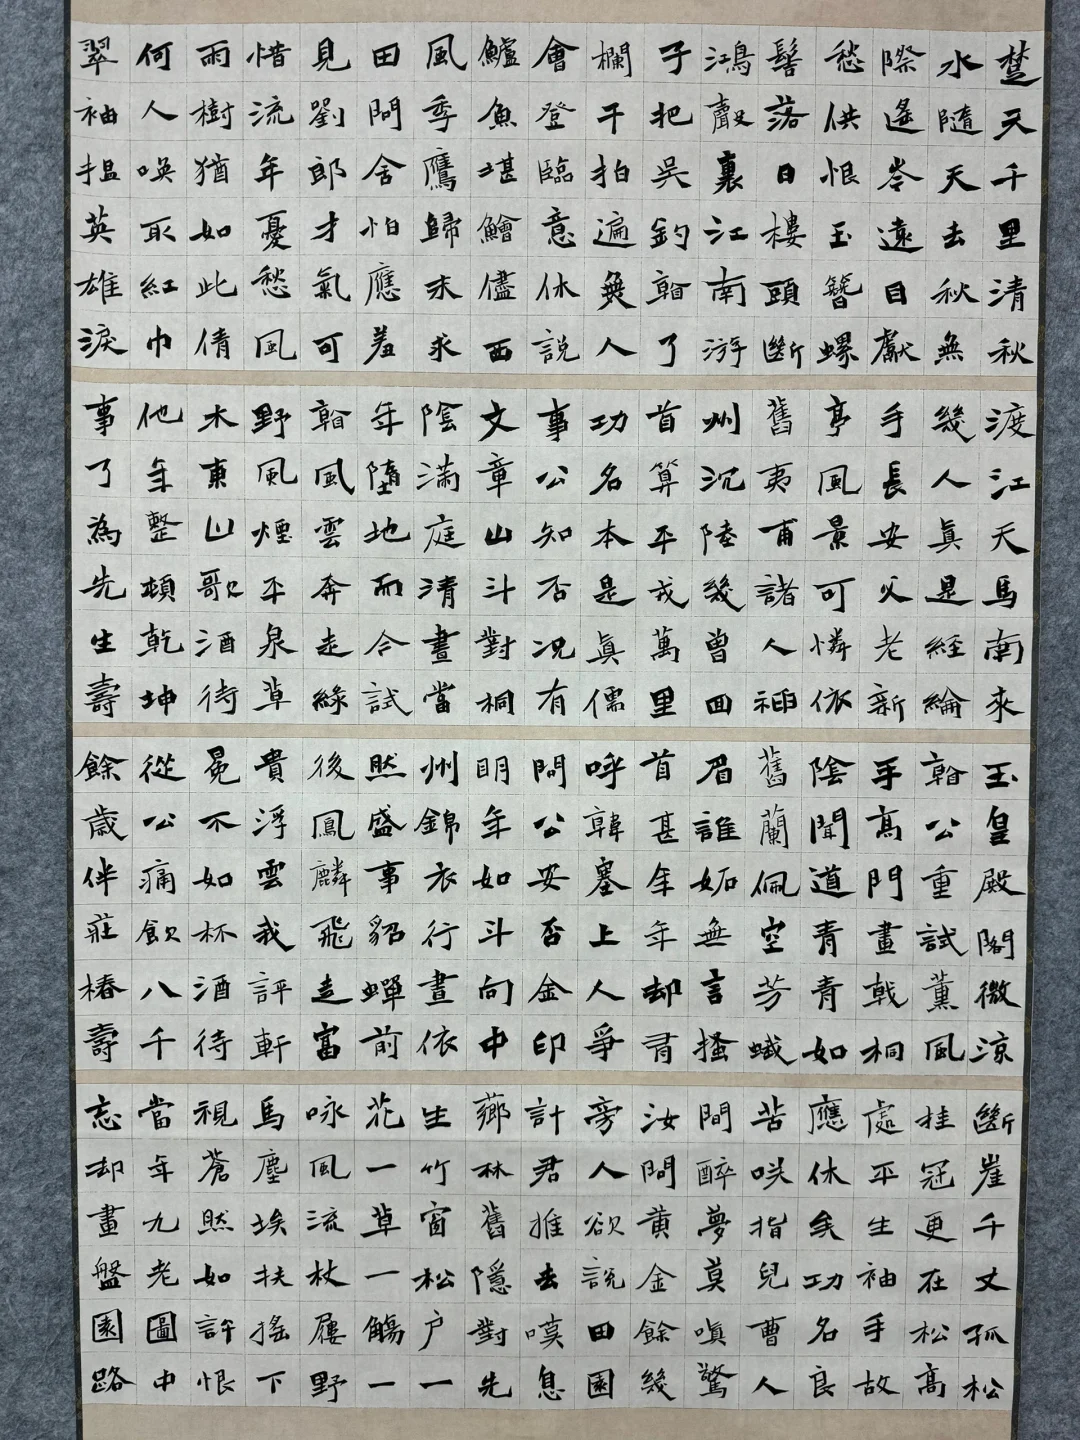 楚天千里清秋
水隨天去秋無
際遙岑遠目獻
愁供恨玉簪螺
髻落日樓頭斷
鴻聲裏江南游
子把吳鈎看了
欄干拍遍無人
會登臨意休說
鱸魚堪鱠儘西
風季鷹歸未求
田問舍怕應羞
見劉郎才氣可
惜流年憂愁風
雨樹猶如此倩
何人喚取紅巾
翠袖搵英雄淚
渡江天馬南來
幾人真是經綸
手長安父老新
亭風景可憐依
舊夷甫諸人神
州沉陸幾曾回
首算平戎萬里
功名本是真儒
事公知否況有
文章山斗對桐
陰滿庭清晝當
年墮地而今試
看風雲奔走綠
野風煙平泉草
木東山歌酒待
他年整頓乾坤
事了為先生壽
玉皇殿閣微涼
看公重試薰風
手高門畫戟桐
陰聞道青青如
舊蘭佩空芳蛾
眉誰妬無言搔
首甚年年却有
呼韓塞上人爭
問公安否金印
明年如斗向中
州錦衣行晝依
然盛事貂蟬前
後鳳麟飛走富
貴浮雲我評軒
冕不如杯酒待
從公痛飲八千
餘歲伴莊椿壽
斷崖千丈孤松
桂冠更在松高
處平生袖手故
應休矣功名良
苦笑指兒曹人
間醉夢莫嗔驚
汝問黃金餘幾
旁人欲說田園
計君推去嘆息
薌林舊隱對先
生竹窗松戶一
花一草一觴一
咏風流杖屨野
馬塵埃扶搖下
視蒼然如許恨
當年九老圖中
忘却畫盤園路